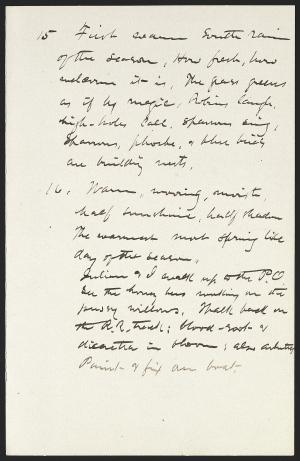 15 First warm South rain
of the season, How fresh, how
welcome it is, The grass greens
as if by magic, Robins laugh,
high-holes call, Sparrows sing,
Sparrows, phoebe, & blue birds
are building nests.
16. Warm, moist,
half sunshine, half shadow
The warmest most Spring like
day of the season.
Julian & I walk up to the P.O.
See the honey bees working on the
pussy willows. Walk back on
the R.R. track; blood-root &
dicentra in bloom; also arbutus
Paint & fix our boat.